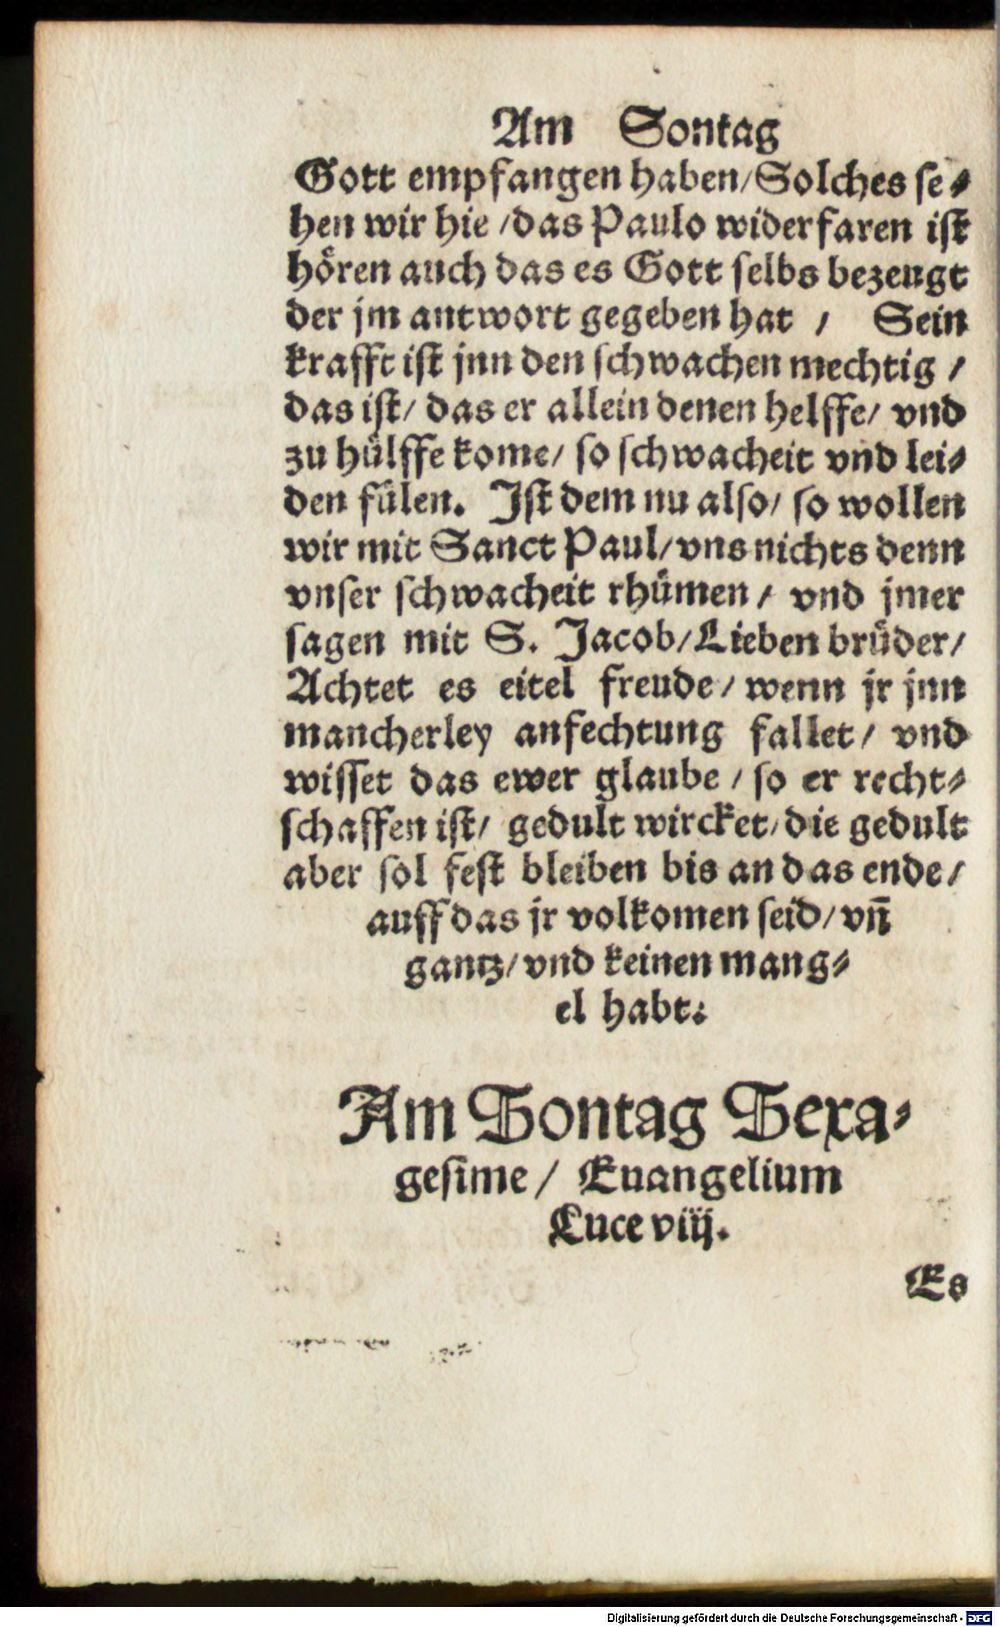 Am Sontag
Gott empfangen haben/Solches se⸗
hen wir hie /das Paulo widerfaren ist
hören auch das es Gott selbs bezeugt
der jm antwort gegeben hat / Sein
krafft ist jnn den schwachen mechtig /
das ist/ das er allein denen helffe/ vnd
zu hülffe kome/ so schwacheit vnd lei⸗
den fülen. Ist dem nu also/ so wollen
wir mit Sanct Paul/vns nichts denn
vnser schwacheit rhümen / vnd jmer
sagen mit S. Jacob/Lieben brüder/
Achtet es eitel freude / wenn jr jnn
mancherley anfechtung fallet / vnd
wisset das ewer glaube / so er recht⸗
schaffen ist/ gedult wircket/die gedult
aber sol fest bleiben bis an das ende/
auff das jr volkomen seid/ vñ
gantz/vnd keinen mang⸗
el habt.
Am Sontag Sexa⸗
gesime / Euangelium
Luce viij.
Es
Digitalisierung gefördert durch die Deutsche Forschungsgemeinschaft - DFG